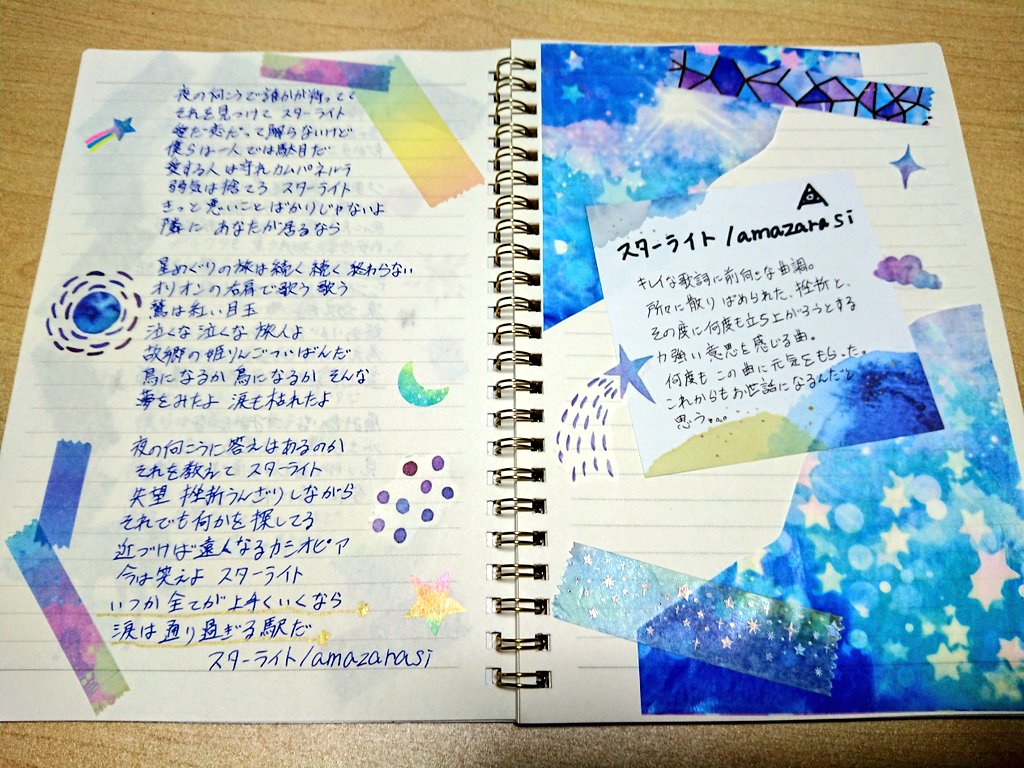 夜の向こうで誰かが待ってて
それを見つけて スターライト
愛だ恋だって解らないけど
僕らは一人では駄目だ
愛する人は守れカムパネルラ
弱気は捨てろ スターライト
きっと悪いことばかりじゃないよ
隣に あなたが居るなら
星めぐりの旅は続く続く 終わらない
オリオンの右肩で歌う 歌う
篤は紅い目玉
泣くな 泣くな 旅人よ
故郷の姫りんごついばんだ
鳥になるか 鳥になるか そんな
夢をみたよ 涙も枯れたよ
夜の向こうに答えはあるのか
それを教えて スターライト
失望 挫折うんざりしながら
それでも何かを探してる
近づけば遠くなるカシオピア
今は笑えよ スターライト
いつか全てが上手くいくなら
涙は通り過ぎる駅だ
スターライト/amazarasi
スターライト/amazarasi
キレイな歌詞に前向きな曲調。
所々に散りばめられた、挫折と、
その度に何度も立ち上がろうとする
力強い意思を感じる曲。
何度もこの曲に元気をもらった。
これからもお世話になるんだと
思う。。。